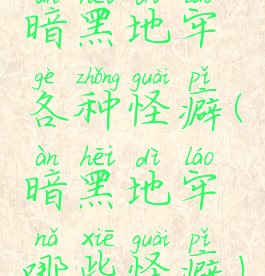 àn hēi dì láo
暗黑地牢
gè zhǒng guài pǐ
各种怪癖(
àn hēi dì láo
暗黑地牢
nǎ xiē guài pǐ
哪些怪癖)